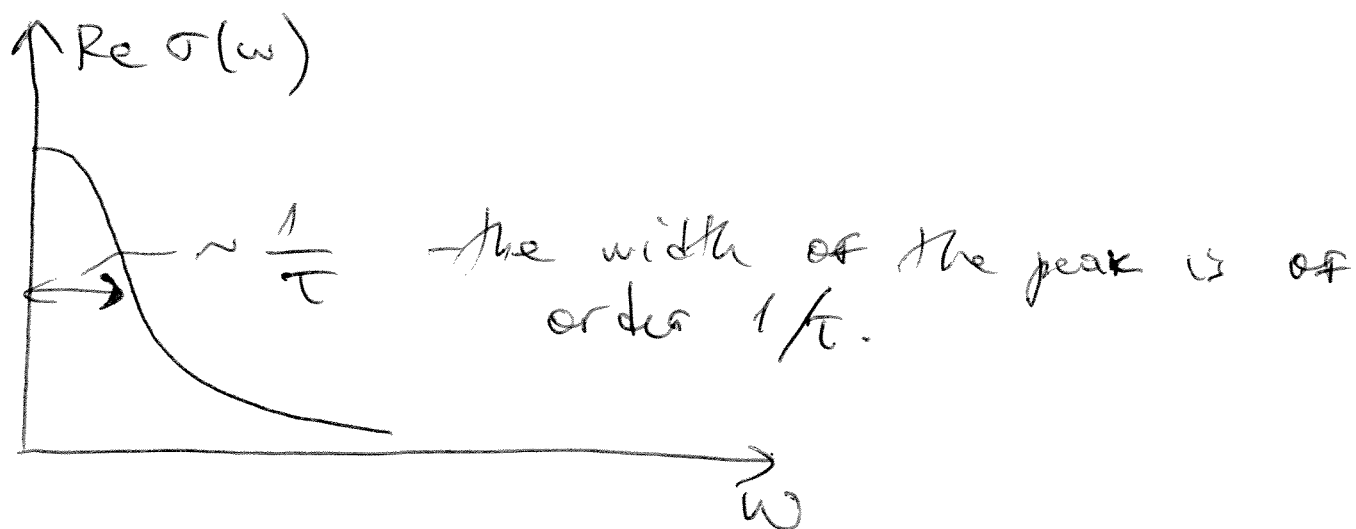 Re σ(ω)
~ 1/τ - the width of the peak is of
order 1/τ.
ω